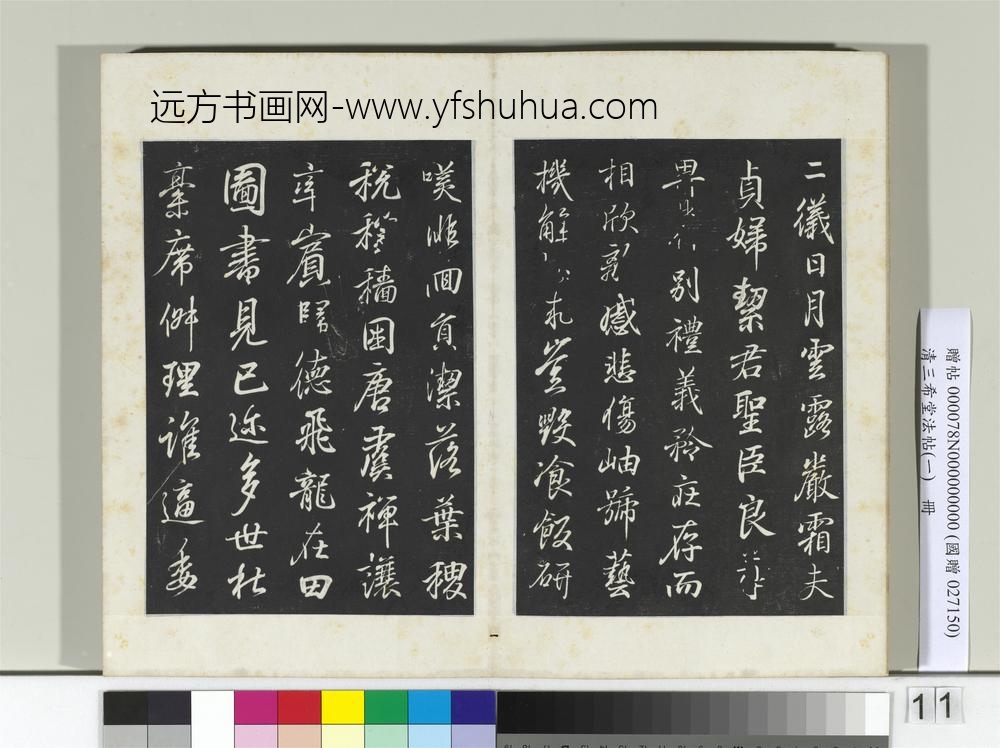 远方书画网-www.yfshuhua.com
二儀日月雲露嚴霜夫
貞婦絜君聖臣良
別禮義矜莊存而
相欣感悲傷岫號藝
機解豈毀飡飯研
嘆賓潔落葉稷
稅穡囷唐虞禪讓
率賓歸德飛龍在田
圖書見已迹多世杜
稾席理誰逼委
贈帖 000078N000000000 (國贈 027150)
清三希堂法帖(一) 冊
11